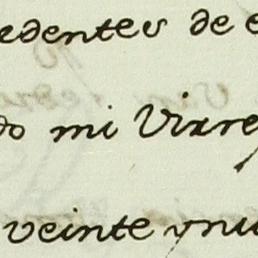 edentes de e
do mi Virre
veinte ynu